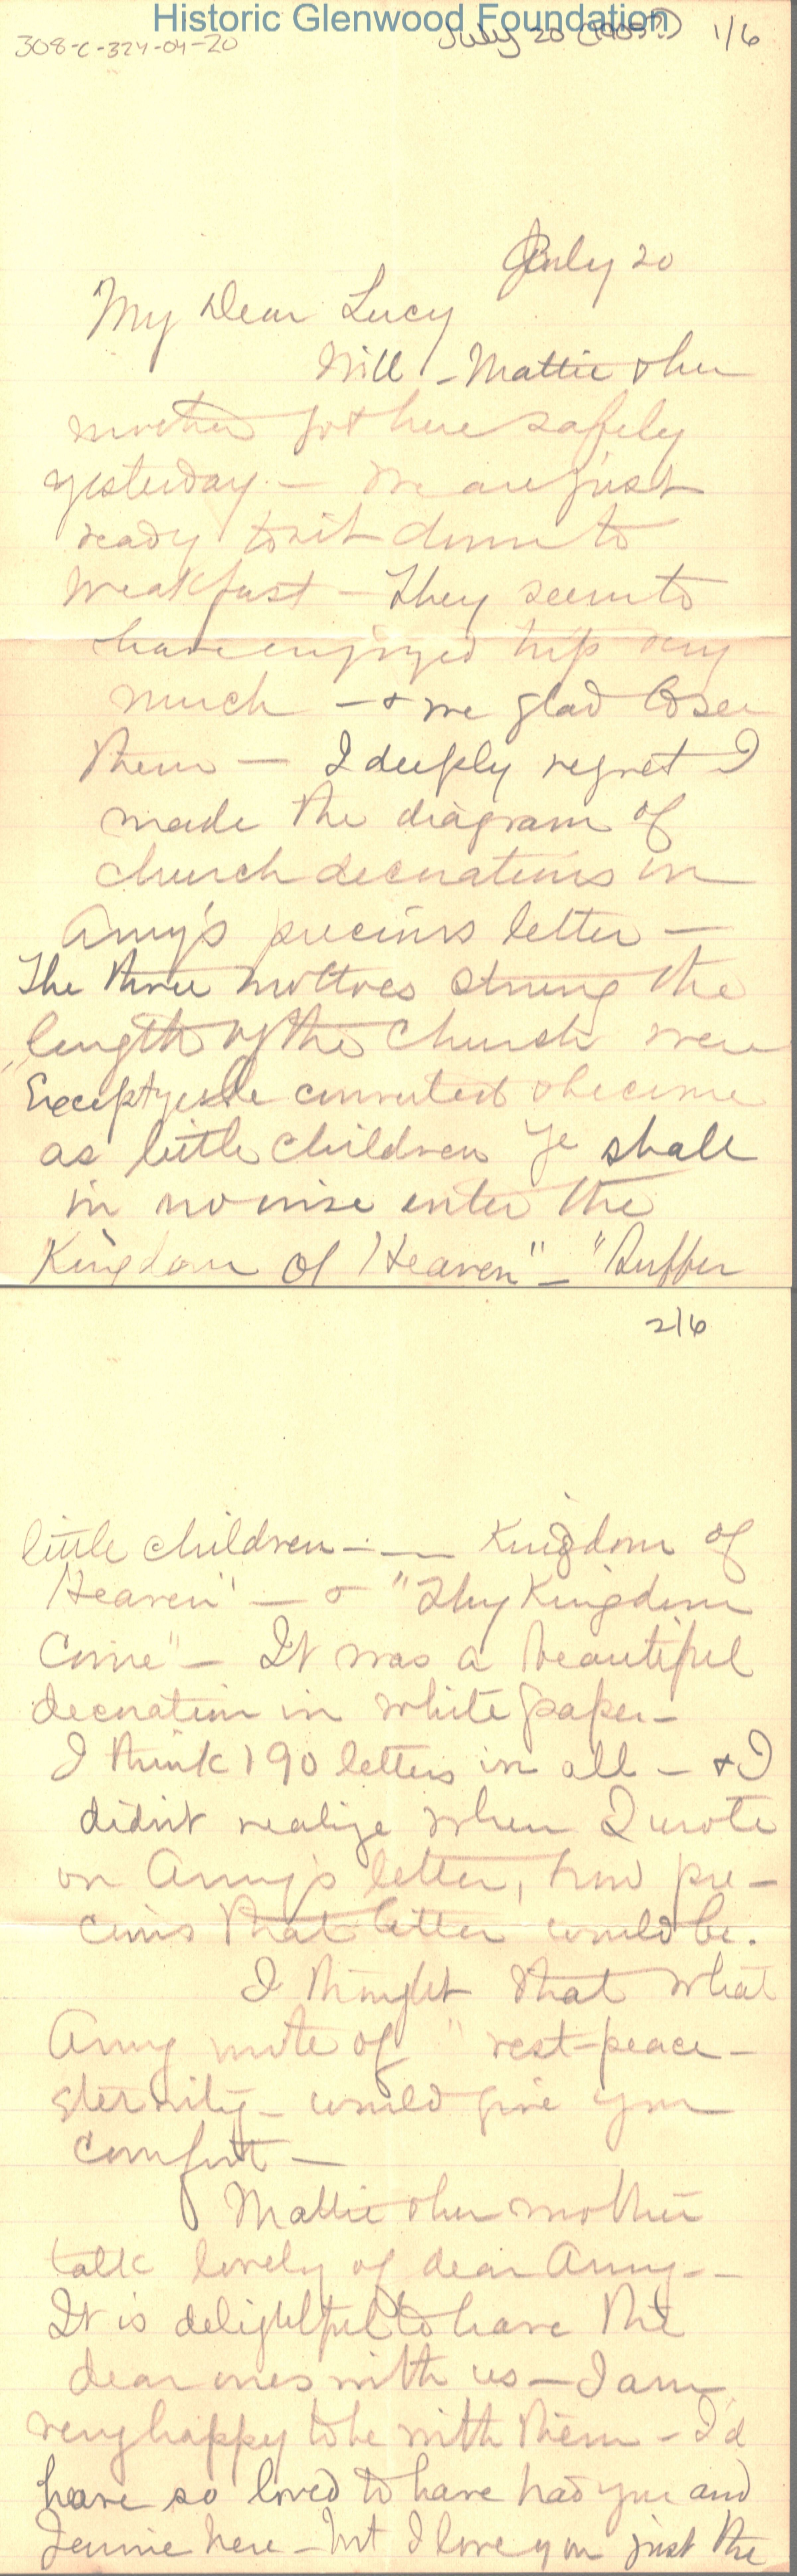 Historic Glenwood Foundation
308-C-324-04-20 July 20 (1905?) 1/6
July 20
My Dear Lucy
Will - Mattie & her
mother got here safely
yesterday - We are just
ready to sit down to
breakfast - They seem to
have enjoyed trip very
much - & we glad to see
them - I deeply regret I
made the diagram of
church decorations on
Amy's precious letter -
The three mottoes strung the
length of the church were
"Except ye be converted & become
as little children ye shall
in no wise enter the
Kingdom of Heaven" - "Suffer
2/6
little children - — Kingdom of
Heaven" - & "Thy Kingdom
Come" - It was a beautiful
decoration in white paper -
I think 190 letters in all - & I
didn't realize when I wrote
on Amy's letter, how pre-
cious that letter would be.
I thought that what
Amy wrote of "rest - peace -
eternity - would give you
comfort -
Mattie & her mother
talk lovely of dear Amy - -
It is delightful to have the
dear ones with us - I am
very happy to be with them - I'd
have so loved to have had you and
Jennie here - but I love you just the